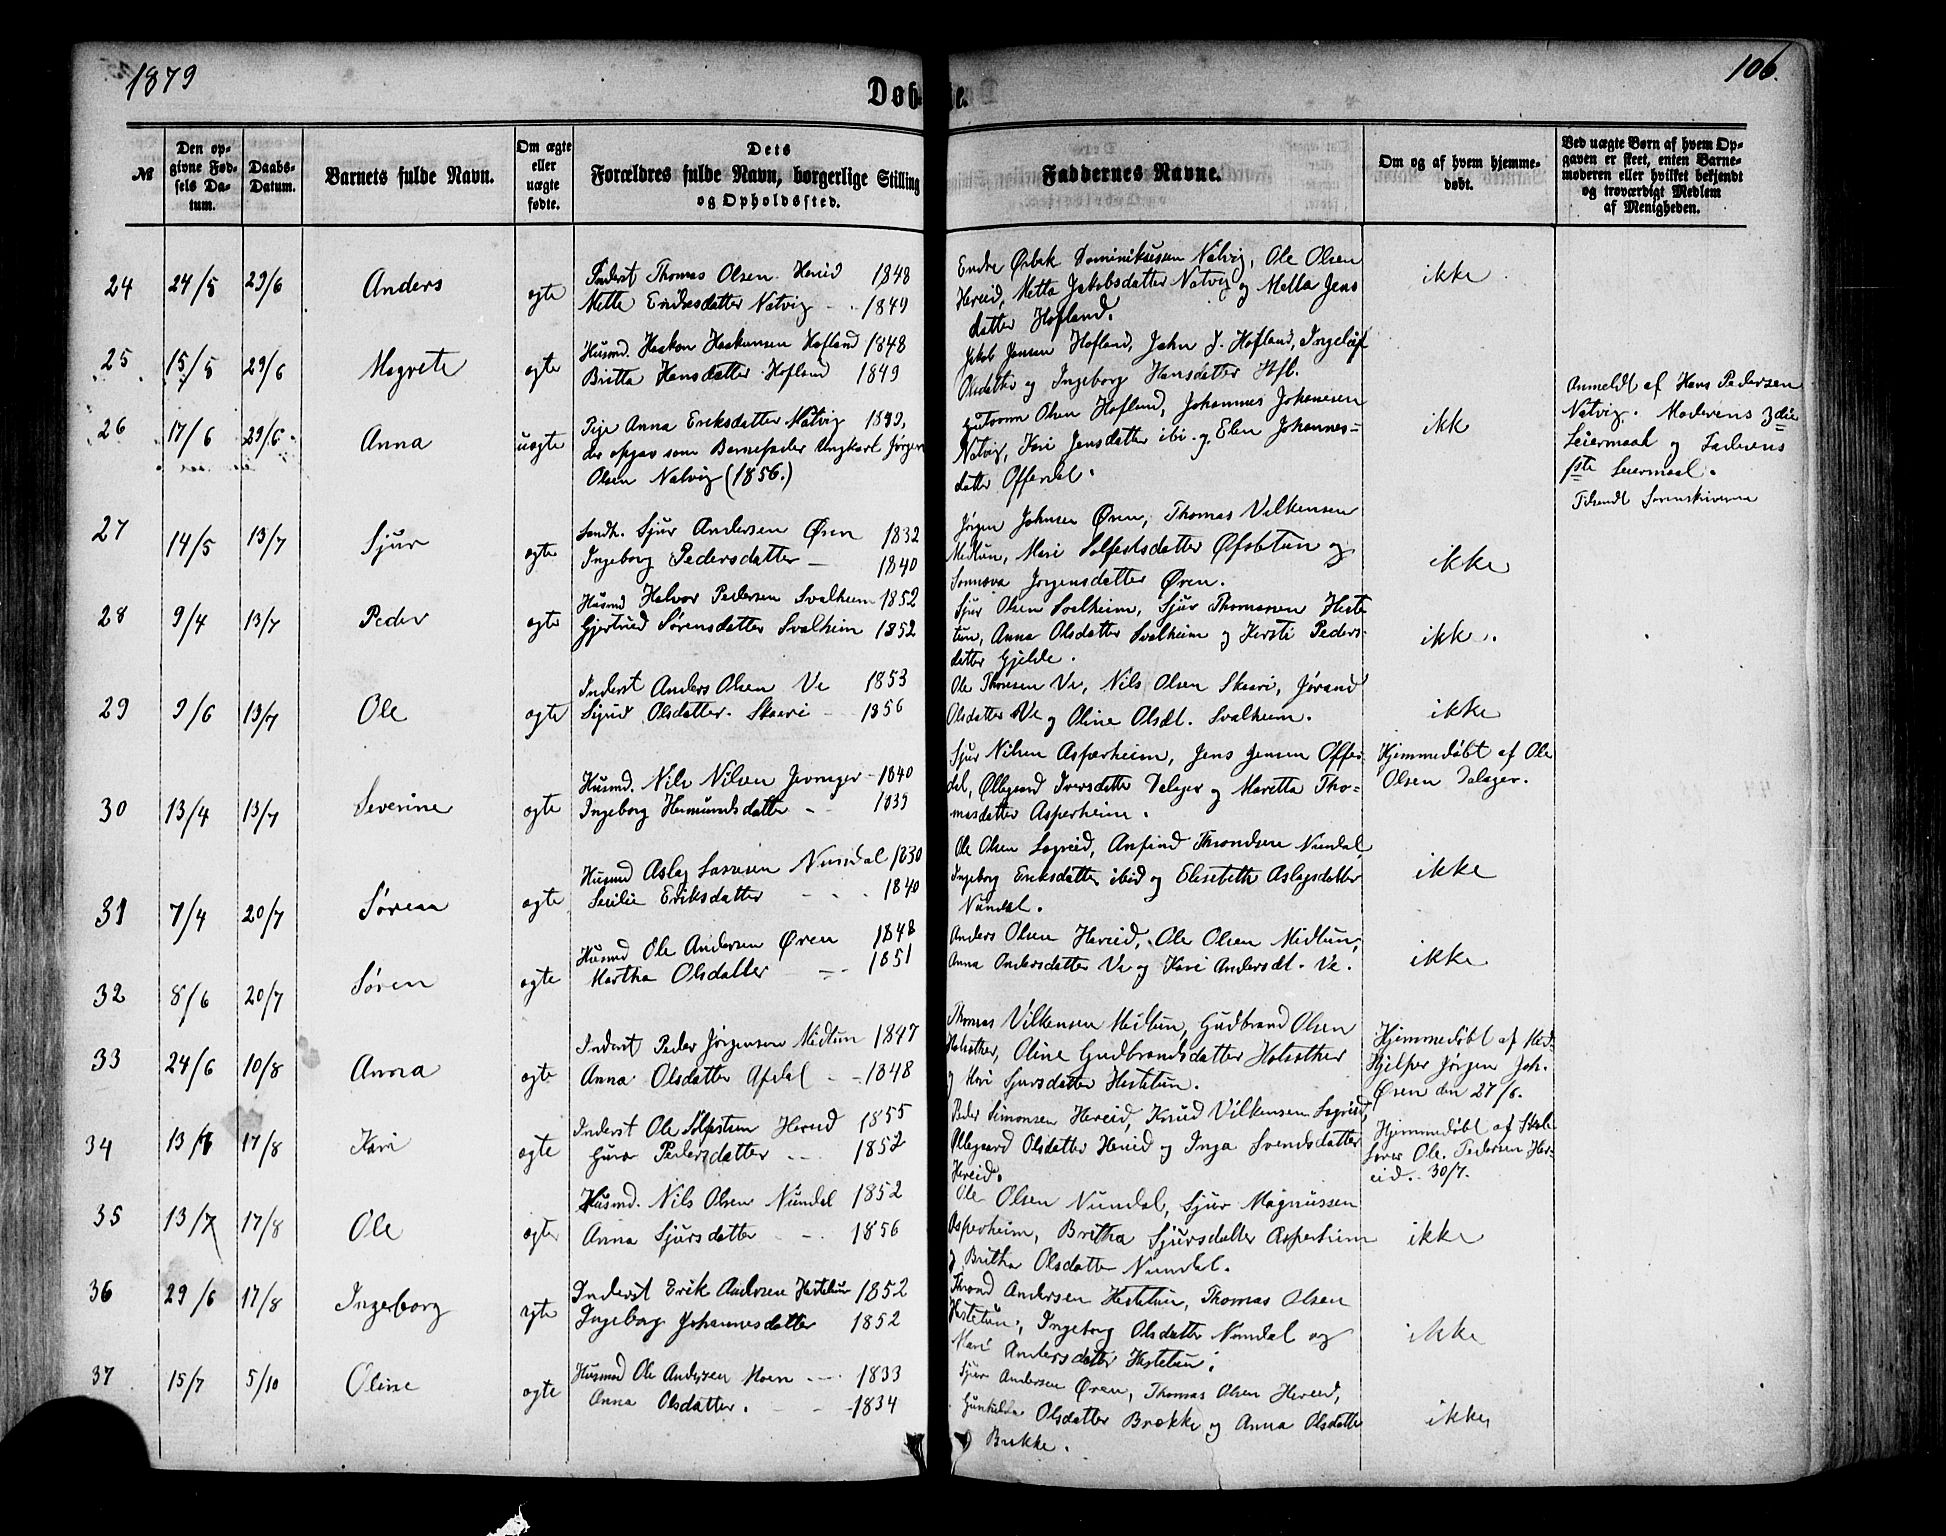 1879
106.
Døb
te.
№
Den opgivne Fødsels Datum.
Daabs-Datum.
Barnets fulde Navn.
Om ægte eller uægte fødte.
Dets Forældres fulde Navn, borgerlige Stilling og Opholdssted.
Faddernes Navne.
Om og af hvem hjemmedøbt.
Ved uægte Børn af hvem Opgaven er skeet, enten Barnemoderen eller hvilket bekjendt og troværdigt Medlem af Menigheden.
24 24/5 29/6 Anders ægte
Inderst Thomas Olsen Hereid 1848
Mette Endresdatter Natvig 1849
Endre Ørbek Dominikussen Natvig, Ole Olsen
Hereid, Metta Jakobsdatter Natvig og Mella Jens
datter Hofland.
ikke
25 15/5 29/6 Magrete ægte
Husmd. Haakon Haakonsen Hofland 1848
Britta Hansdatter Hofland 1849
Jakob Jensen Hofland, John J. Hofland, Ingeleif
Olsdatter og Ingeborg Hansdatter Hofl.
26 17/6 29/6 Anna uægte
Pige Anna Eriksdatter Natvig
der opgav som Barnefader Ungkarl Jørgen
Olsen Natvig (1856.)
Guttorm Olsen Hofland, Johannes Johannesen
Natvig, Kari Jensdatter ibi. og Elen Johannes-
datter Offerdal.
ikke
Anmeldt af Hans Pedersen
Natvig. Moderens 3die
Leiermaal og Faderens
1ste Leiermaal.
Tilsendt Sorenskriveren
27 14/5 13/7 Sjur ægte
Sjur Andersen Øren 1832
Ingeborg Pedersdatter 1840
Jørgen Johnsen Øren, Thomas Vilkensen
Midtun, Mari Solfestsdatter Øfstetun og
Sonnova Jørgensdatter Øren.
ikke
28 9/4 13/7 Peder ægte
Husmd Halvor Pedersen Svalheim 1852
Gjertrud Sørensdatter Svalheim 1852
Sjur Olsen Svalheim, Sjur Thomassen Heste
tun, Anna Olsdatter Svalheim og Kersti Peders-
datter Gjelde.
ikke.
29 9/6 13/7 Ole ægte
Inderst Anders Olsen Ve 1853
Sigrid Olsdatter Skaari 1856
Ole Thomsen Ve, Nils Olsen Skaari, Jørand
Olsdatter Ve og Oline Olsdt. Svalheim.
ikke
30 13/4 13/7 Severine ægte
Husmd. Nils Nilsen Jevnager 1840
Ingeborg Hermundsdatter 1839
Sjur Nilsen Asperheim, Jens Jensen Offer
dal, Øllegaard Iversdatter Dalager og Maretta Tho-
masdatter Asperheim.
Hjemmedøbt af Ole
Olsen Dalager.
31 7/4 20/7 Søren ægte
Husmd Aslag Lassesen Nundal 1830
Secilie Eriksdatter 1840
Ole Olsen Lægreid, Anfind Throndsen Nundal,
Ingeborg Eriksdatter ibid og Elisebeth Aslagsdatter
Nundal.
ikke
32 8/6 20/7 Søren ægte
Husmd Ole Andersen Øren 1848
Martha Olsdatter 1851
Anders Olsen Hereid, Ole Olsen Midtun,
Anna Andersdatter Ve og Kari Andersdt. Ve.
ikke
33 24/6 10/8 Anna ægte
Inderst Peder Jørgensen Midtun 1847
Anna Olsdatter Afdal 1848
Thomas Vilkensen Midtun, Gudbrand Olsen
Holsether, Oline Gudbrandsdatter Holsether
og Mari Sjursdatter Hestetun.
Hjemmedøbt af Med-
hjelper Jørgen Joh.
Øren den 27/6.
34 13/7 17/8 Kari ægte
Inderst Ole Solfestsen Hereid 1855
Guro Pedersdatter 1852
Peder Simonsen Hereid, Knud Vilkensen Lægreid,
Øllegaard Olsdatter Hereid og Inga Svendsdatter
Hereid.
Hjemmedøbt af Skole
lærer Ole Pedersen Her-
eid. 30/7.
35 13/7 17/8 Ole ægte
Husmd. Nils Olsen Nundal 1852
Anna Sjursdatter 1856
Ole Olsen Nundal, Sjur Magnussen
Asperheim, Britha Sjursdatter Asperheim
og Britha Olsdatter Nundal.
ikke
36 29/6 17/8 Ingeborg ægte
Inderst Erik Andersen Hestetun 1852
Ingeborg Johannesdatter 1852
Thrond Andersen Hestetun, Thomas Olsen
Hestetun, Ingeborg Olsdatter Nundal og
Mari Andersdatter Hestetun.
ikke
37 15/7 5/10 Oline ægte
Husmd Ole Andersen Moen 1833
Anna Olsdatter. 1834
Sjur Andersen Øren, Thomas Olsen Hereid,
Gunhilda Olsdatter Brække og Anna Olsdatter
Brække.
ikke